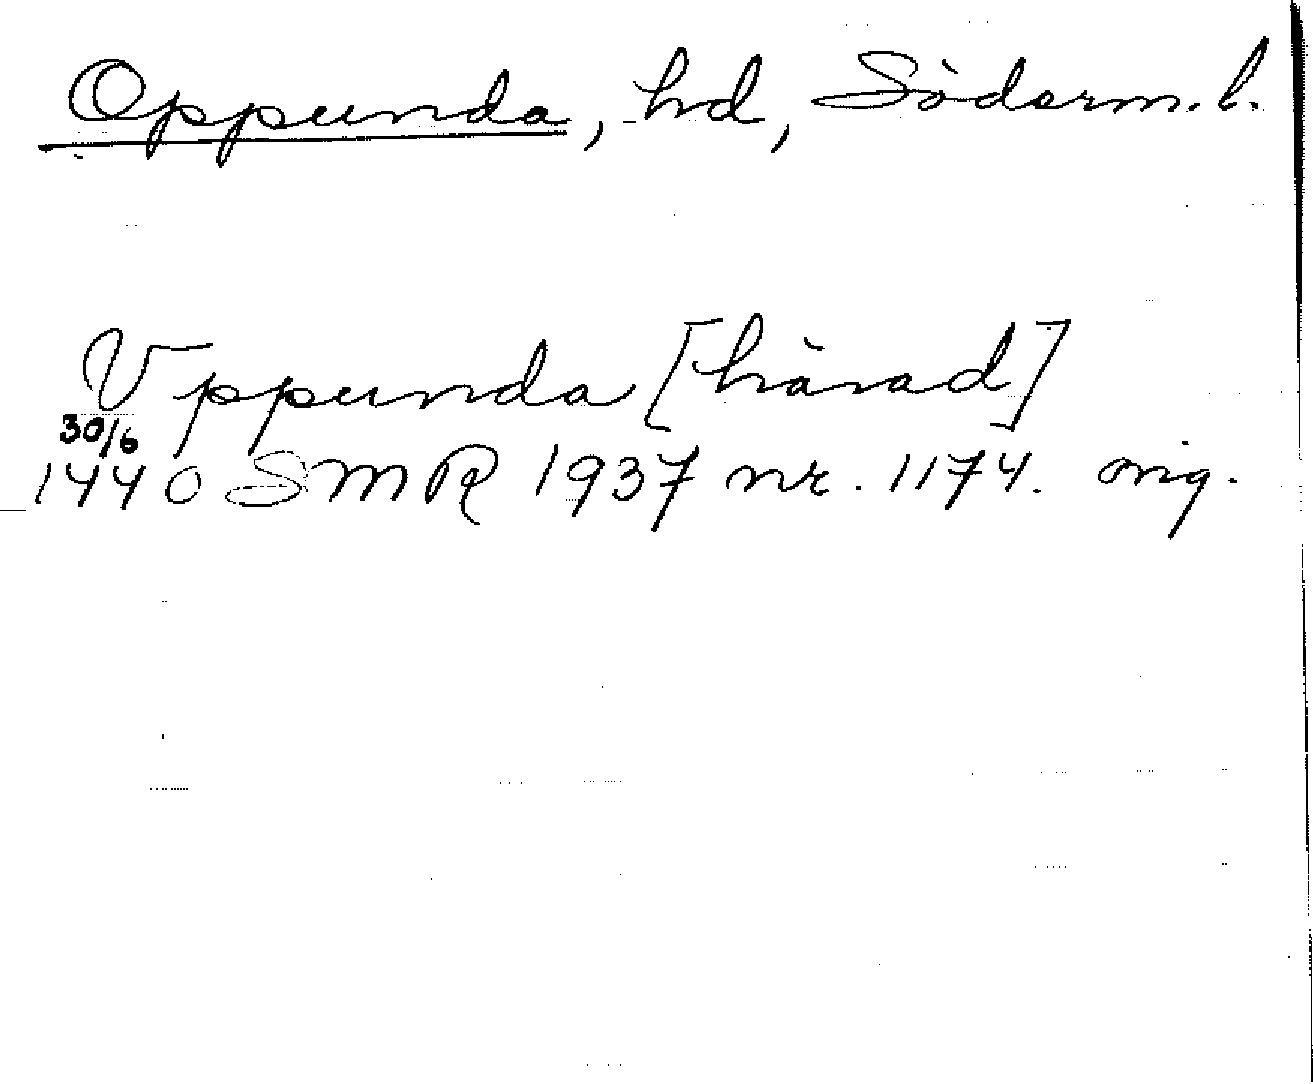 Oppunda, hd, Söderm. l.
Vppunda [härad]
30/6
1440 SMR 1937 nr. 1174. orig.